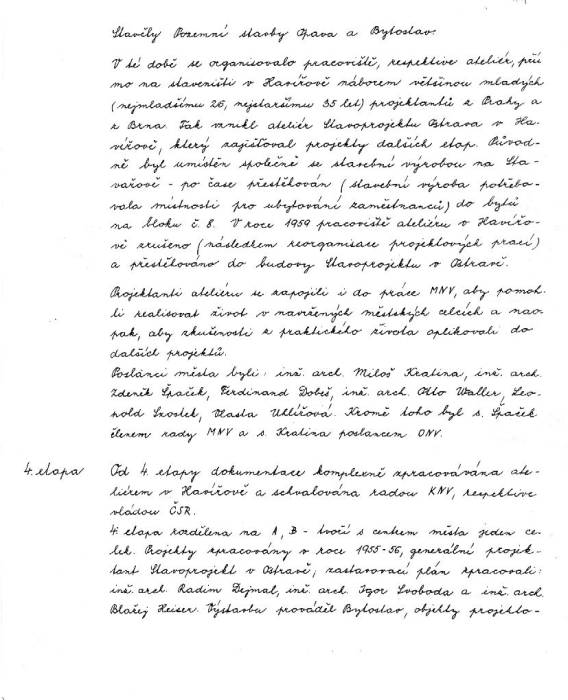 Stavěly Pozemní stavby Opava a Bytostav.
V té době se organisovalo pracoviště, respektive ateliér, pří
mo na staveništi v Havířově náborem většinou mladých
(nejmladšímu 26, nejstaršímu 35 let) projektantů z Prahy a
z Brna. Tak vznikl ateliér Stavoprojektu Ostrava v Ha-
vířově, který zajišťoval projekty dalších etap. Původ-
ně byl umístěn společně se stavební výrobou na Sta-
vařově - po čase přestěhován (stavební výroba potřebo-
vala místnosti pro ubytování zaměstnanců) do bytů
na bloku č. 8. V roce 1959 pracoviště ateliéru v Havířo-
vě zrušeno (následkem reorganisace projektových prací)
a přestěhováno do budovy Stavoprojektu v Ostravě.
Projektanti ateliéru se zapojili i do práce MNV, aby pomoh-
li realisovat život v navržených městských celcích a nao-
pak, aby zkušenosti z praktického života aplikovali do
dalších projektů.
Poslanci města byli: inž. arch. Miloš Kratina, inž. arch.
Zdeněk Špaček, Ferdinand Dobeš, inž. arch. Otto Waller, Leo-
pold Snostek, Vlasta Uhlířová. Kromě toho byl s. Špaček
členem rady MNV a s. Kratina poslancem ONV.
4. etapa Od 4. etapy dokumentace komplexně zpracovávána ate-
liérem v Havířově a schvalována radou KNV, respektive
vládou ČSR.
4. etapa rozdělena na A, B - tvoří s centrem města jeden ce-
lek. Projekty zpracovány v roce 1955-56, generální projek-
tant Stavoprojekt v Ostravě; zastavovací plán zpracovali:
inž. arch. Radim Dejmal, inž. arch. Igor Svoboda a inž. arch.
Blažej Heiser. Výstavbu prováděl Bytostav, objekty projekto-